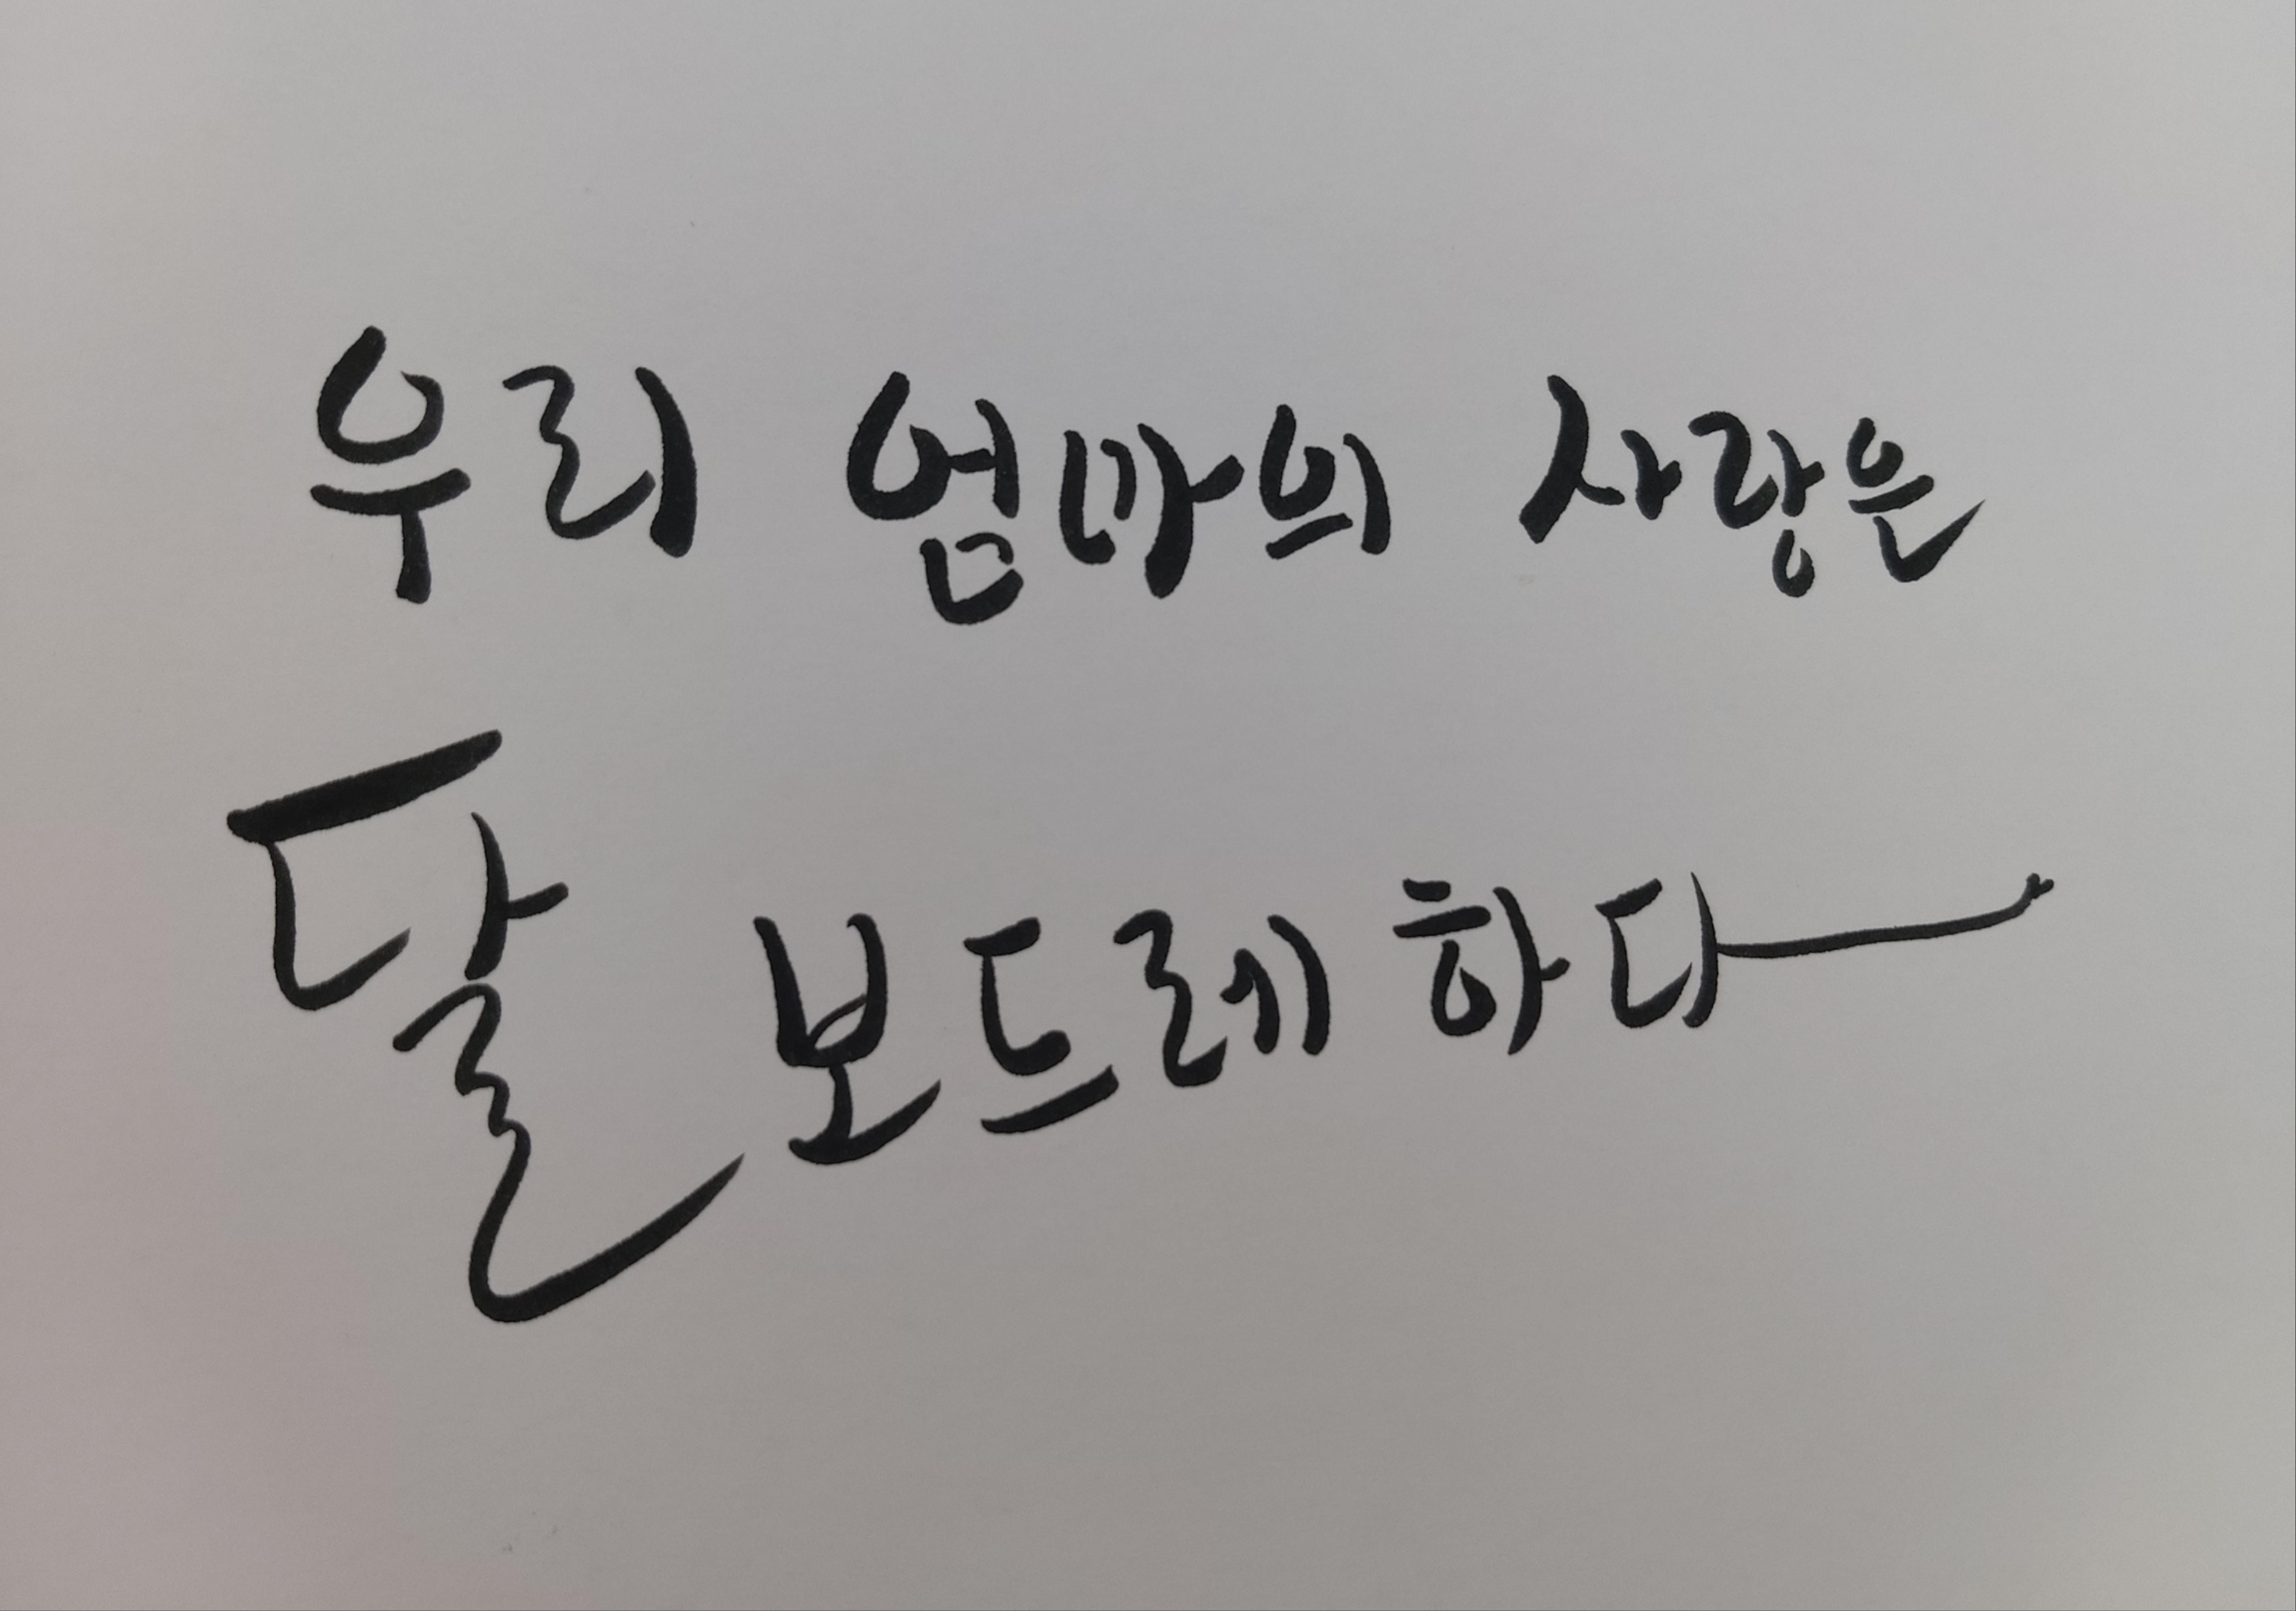 우리 엄마의 사랑은
달보드레하다